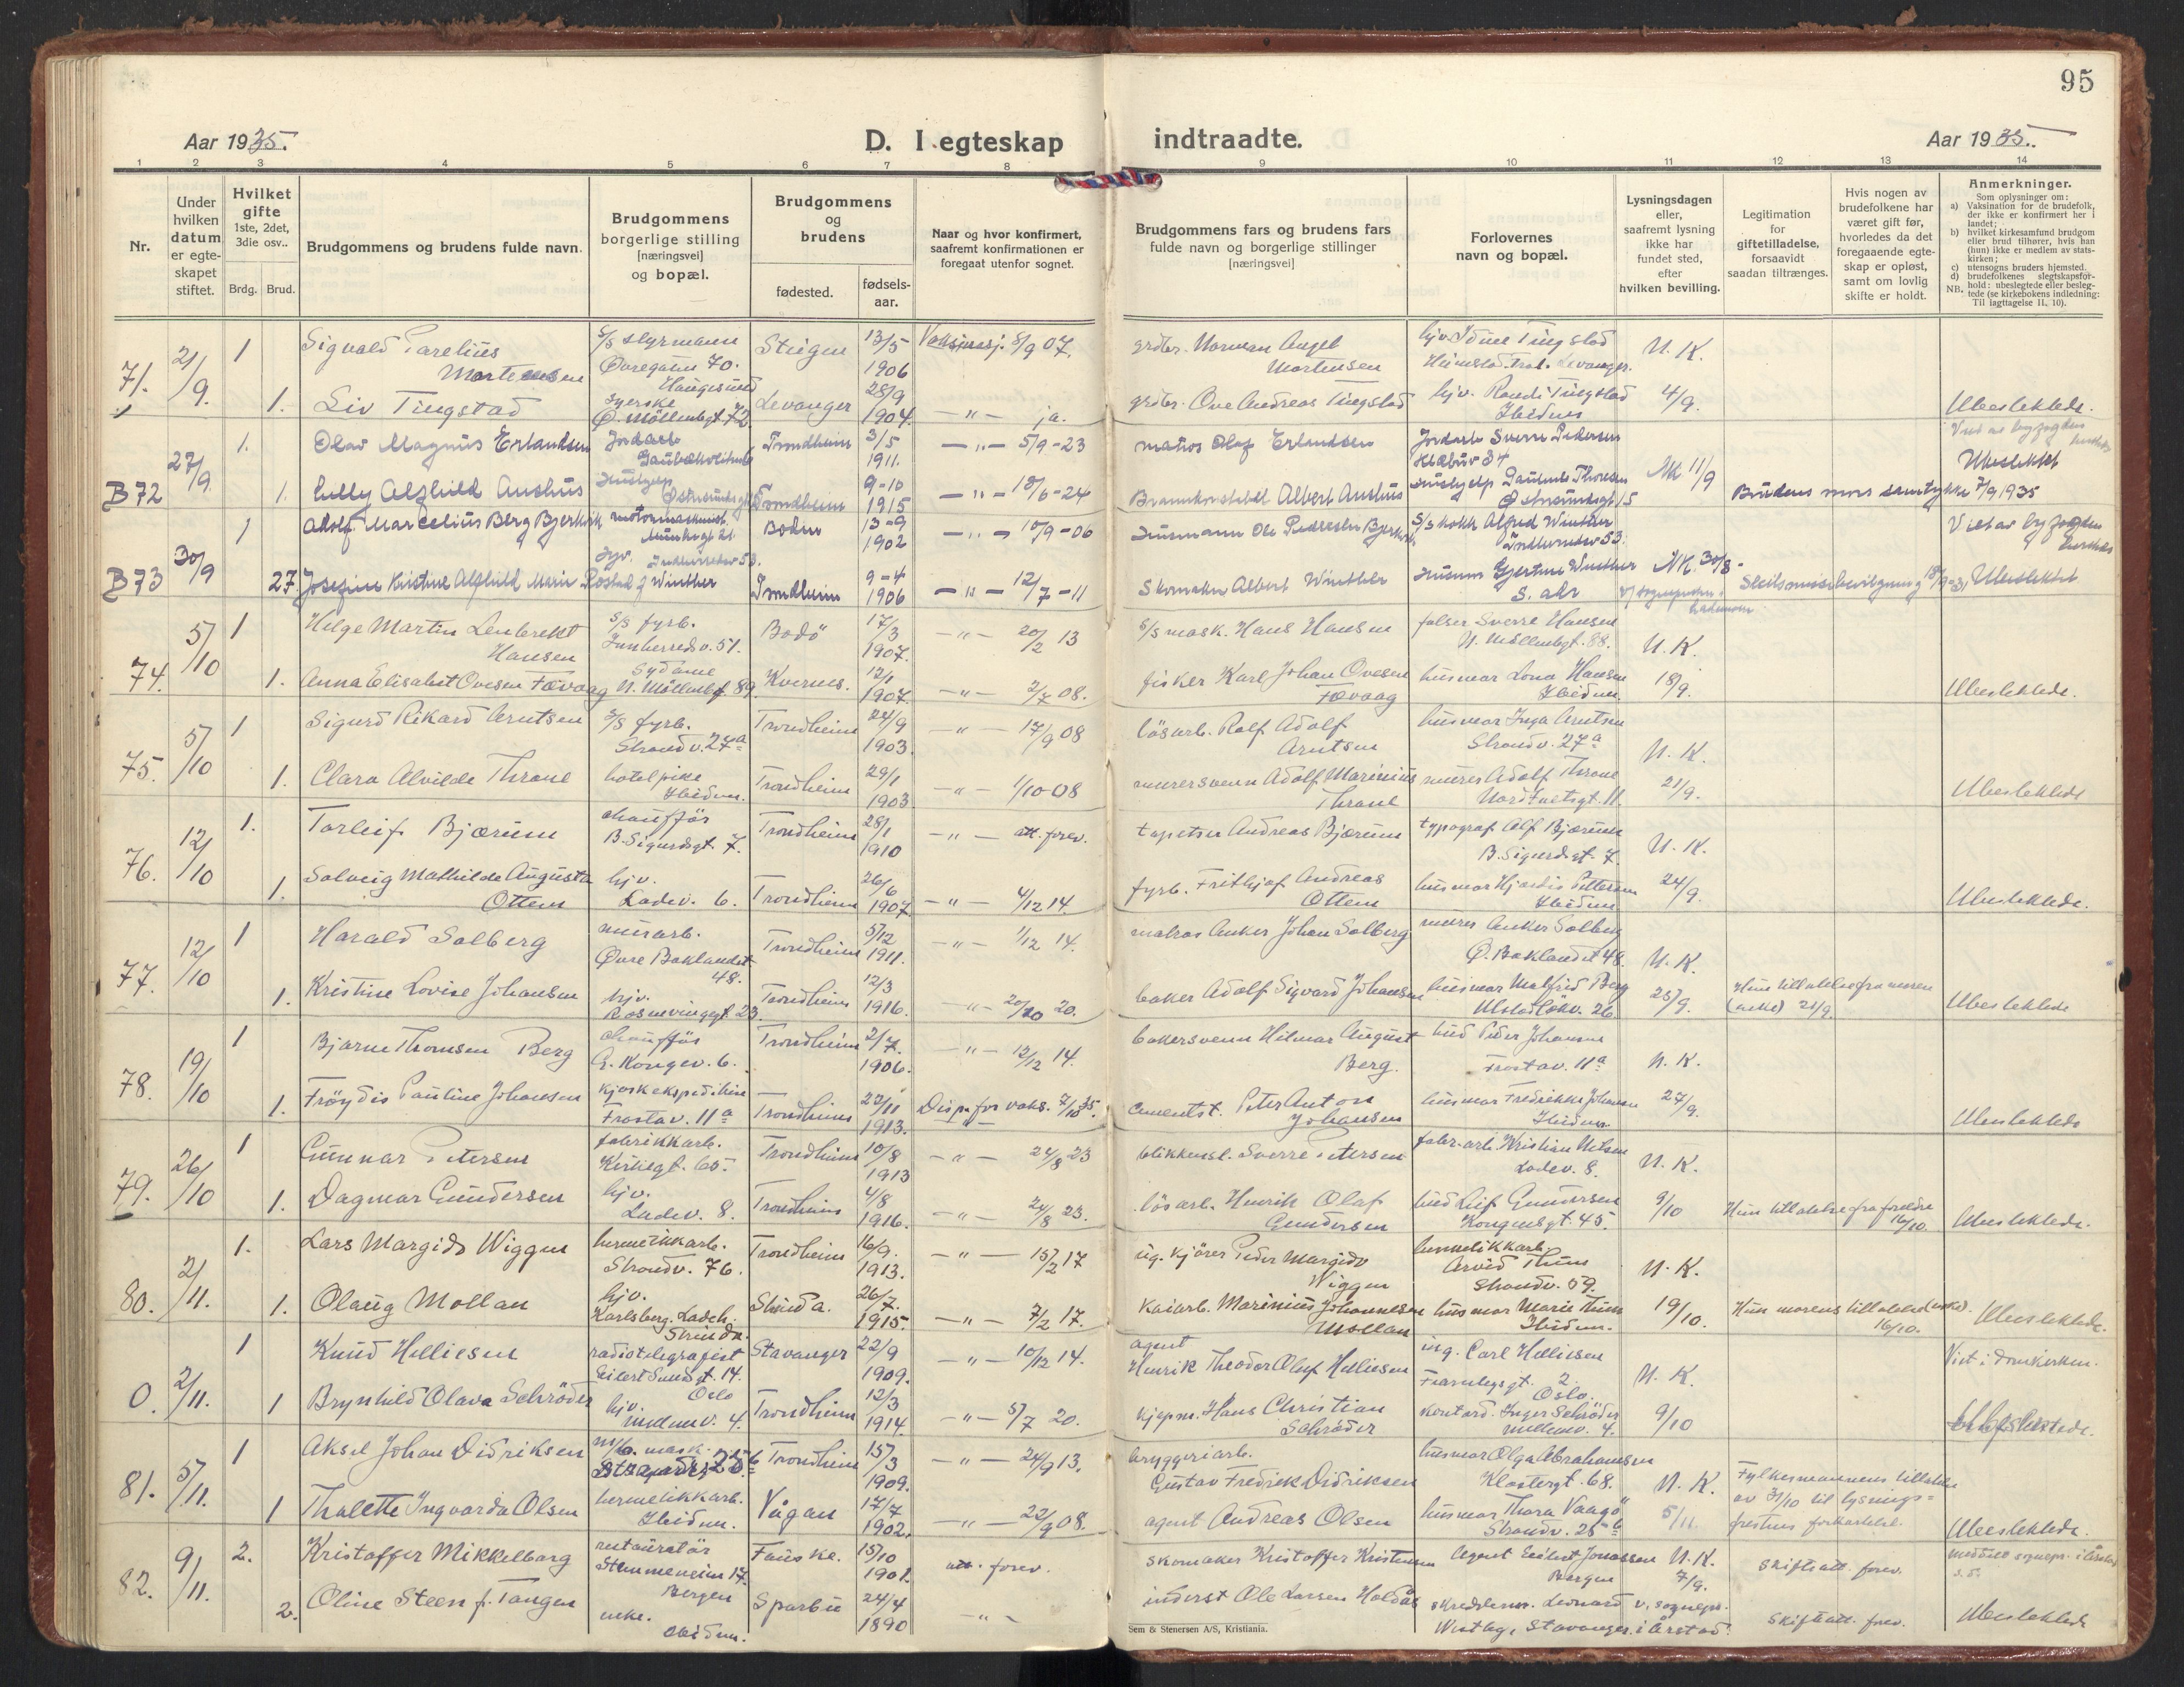 95
Aar 1935.
D. I egteskap
indtraadte.
Aar 1935.
1 2 3 4 5 6 7 8 9 10 11 12 13 14
Nr.
Under hvilken datum er egteskapet stiftet.
Hvilket gifte 1ste, 2det, 3die osv..
Brdg. Brud.
Brudgommens og brudens fulde navn.
Brudgommens borgerlige stilling [næringsvei] og bopæl.
Brudgommens og brudens
fødested.
fødsels-aar.
Naar og hvor konfirmert, saafremt konfirmationen er foregaat utenfor sognet.
Brudgommens fars og brudens fars fulde navn og borgerlige stillinger [næringsvei]
Forlovernes navn og bopæl.
Lysningsdagen eller, saafremt lysning ikke har fundet sted, efter hvilken bevilling.
Legitimation for giftetilladelse, forsaavidt saadan tiltrænges.
Hvis nogen av brudefolkene har været gift før, hvorledes da det foregaaende egteskap er opløst, samt om lovlig skifte er holdt.
Anmerkninger.
Som oplysninger om:
a) Vaksination for de brudefolk, der ikke er konfirmert her i landet;
b) hvilket kirkesamfund brudgom eller brud tilhører, hvis han (hun) ikke er medlem av statskirken;
c) utensogns bruders hjemsted.
d) brudefolkenes slegtskapsforhold: ubeslegtede eller beslegtede (se kirkebokens indledning:
NB. Til iagttagelse II, 10).
71. 21/9. 1 Sigvald Parelius Mortensen S/S styrmann Øvregaten 70. Haugesund Steigen 13/5 1906 Vaksinasj. 8/9 07. grdbr. Norman Angel Mortensen hjv. Idunn Tingstad Levanger. N. K.
1. Liv Tingstad syerske Ø. Möllenbgt 72. Levanger 28/9 1904. -"- ja. grdbr. Ove Andreas Tingstad hjv. Randi Tingstad Ibidem 4/9. Ubeslektede.
B72 27/9 1. Olav Magnus Erlandsen Trondheim 3/5 1911. -"- 5/9-23 matros Olaf Erlandsen Sverre Pedersen Klæbuv 34 NK 11/9
1. Lilly Alfhild Aushus Trondheim 9-10 1915 -"- 18/6-24 Albert Aushus Thoresen Brudens mors samtykke 7/9 1935 Ubeslektet
B73 30/9 1 Adolf Marcelius Berg Bjerkvik Bodin 13-9 1902 -"- 10/9-06 S/S kokk Alfred Winther Innherredsv 53. NK. 30/8-
27. Josefine Kristine Alfhild Marie Rostad f Winther hjv. Innherredsv 53. Trondheim 9-4 1906 -"- 12/7-11 Skomaker Albert Winther Gjertine Winther s. adr Ubeslektet
74. 5/10 1 Helge Martin Lenbrekt Hansen S/S fyrb. Innherredsv. 51. Bodö 17/3 1907. -"- 20/2 13 S/S mask. Hans Hansen falser Sverre Hansen N. Möllenbgt. 88. N. K.
1. Anna Elisabet Ovesen Fævaag Sydame N. Möllenbgt 89. Kvernes. 12/1 1907. -"- 2/7 08. fisker Karl Johan Ovesen Fævaag husmor Lona Hansen Ibidem 18/9. Ubeslektede.
75. 5/10 1 Sigurd Rikard Arntsen S/S fyrb. Strandv. 27a Trondheim 24/9 1903. -"- 17/9 08 lösarb. Rolf Adolf Arntsen husmor Inga Arntsen Strandv. 27a N. K.
1. Clara Alvilde Thrane hotelpike Ibidem. Trondheim 29/1 1903 -"- 1/10-08 murersvenn Adolf Marinius Thrane murer Adolf Thrane 21/9. Ubeslektede
76. 12/10 1. Torleif Bjørum chauffør B. Sigurdsgt. 7. Trondheim 28/1 1910 -"- att. forev. tapetser Andreas Bjørum typograf Alf Bjørum B. Sigurdsgt. 7. N. K.
1. Solveig Mathilde Augusta Ottem hjv. Ladev. 6. Trondheim 26/6 1907 -"- 4/12 14. fyrb. Frithjof Andreas Ottem husmor Hjørdis Pettersen Ibidem 24/9. Ubeslektede.
77. 12/10 1 Harald Solberg murarb. Øvre Baklandet 48. Trondheim 5/12 1911. -"- 1/12 14. matros Anker Johan Solberg murer Anker Solberg Ø. Baklandet 48. N. K.
1. Kristine Lovise Johansen hjv. Rosenvingegt 23. Trondheim 12/3 1916. -"- 20/10 20. baker Adolf Sigvard Johansen husmor Malfrid Berg Ulstadløkv. 26. 25/9. Hun tillatelse fra moren (enke) 21/9. Ubeslektede
78. 19/10 1 Bjarne Thomsen Berg chauffør G. Kongev. 6. Trondheim 2/7. 1906. -"- 12/12 14. bakersvenn Hilmar August Berg. bud Peder Johansen Frostav. 11a N. K.
1. Fröydis Pauline Johansen kioskekspeditrise Frostav. 11a Trondheim 23/11 1913. Disp. for vaks. 7/10 35. cementst. Peter Anton Johansen husmor Fredrikke Johansen Ibidem 27/9. Ubeslektede
79. 26/10 1 Gunnar Petersen fabrikkarb. Kirkegt. 65. Trondheim 10/8 1913 -"- 24/8 23 blikkensl. Sverre Petersen fabr. arb. Kristian Nilsen Ladev. 8. N. K.
1. Dagmar Gundersen hjv. Ladev. 8. Trondheim 4/8 1916. -"- 24/8 23. lösarb. Henrik Olaf Gundersen bud Leif Gundersen Kongensgt. 45. 9/10 Hun tillatelse fra foreldre 16/10. Ubeslektede.
80. 2/11. 1. Lars Margido Wiggen hermetikkarb. Strandv. 76. Trondheim 16/9. 1913. -"- 15/2 17 sig. kjörer Peder Margido Wiggen hermetikkarb. Arvid Thun Strandv. 59. N. K.
1. Olaug Mollan hjv. Karlsberg. Ladeh. Strinda. Strinda. 26/7. 1915. -"- 7/2 17. kaiarb. Marinius Johannesen Mollan husmor Marie Thun Ibidem. 19/10. Hun morens tillatelse (enke). 16/10. Ubeslektede.
0. 2/11. 1 Knud Helliesen radiotelegrafist Eilert Sundsgt. 14. Oslo Stavanger 22/9 1909. -"- 10/12 14. agent Henrik Theodor Oluf Helliesen ing. Carl Helliesen Fearnleysgt. 2. Oslo. N. K. Viet i Domkirken.
1 Brynhild Olava Schrøder hjv. Trondheim 12/3 1914. -"- 5/7 20. kjøpm. Hans Christian Schrøder kontord. Inger Schrøder 9/10 Ubeslektede.
81. 5/11. 1 Aksel Johan Didriksen m/b. mask. Trondheim 15/3 1909. -"- 24/9 13. bryggeriarb. Gustav Fredrik Didriksen husmor Olga Abrahamsen Klostergt. 68. N. K. Fylkesmannens tillatelse av 31/10 til lysnings-fristens forkortelse.
1 Thalette Ingvarda Olsen hermetikkarb. Ibidem. Vågan 17/7 1902. -"- 22/9 08. agent Andreas Olsen husmor Thora Vaagø Strandv. 25b 5/11. Ubeslektede.
82. 9/11. 2. Kristoffer Mikkelborg restauratør Bergen Fauske. 15/10 1901. att. forev. skomaker Kristoffer Kristensen Agent Eilert Jonassen Bergen N. K. 7/9. skifteatt. forev.
2. Oline Steen f. Tangen enke. Ibidem. Sparbu 24/4 1890 -"- inderst Ole Larsen Holdås skredderm. Leonard Westby, Stavanger. v. sognepr. i Årstad. skifteatt. forev. Ubeslektede
Sem & Stenersen A/S, Kristiania.